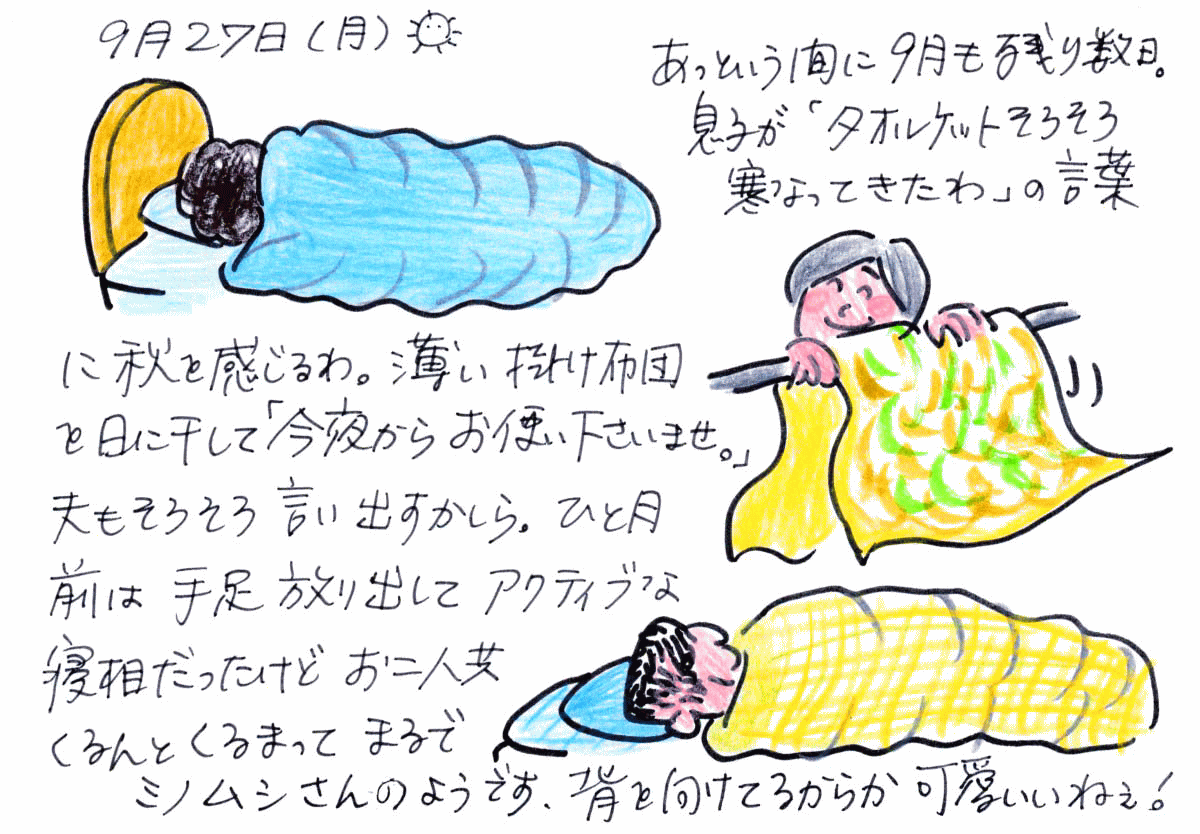 9月27日(月)
あっという間に9月も残り数日。
息子が「タオルケットそろそろ
寒なってきたわ」の言葉
に秋を感じるわ。薄い掛け布団
を日に干して「今夜からお使い下さいませ。」
夫もそろそろ言い出すかしら。ひと月
前は手足放り出してアクティブな
寝相だったけどお二人共
くるんとくるまってまるで
ミノムシさんのようです、背を向けてるからか可愛いいねぇ!